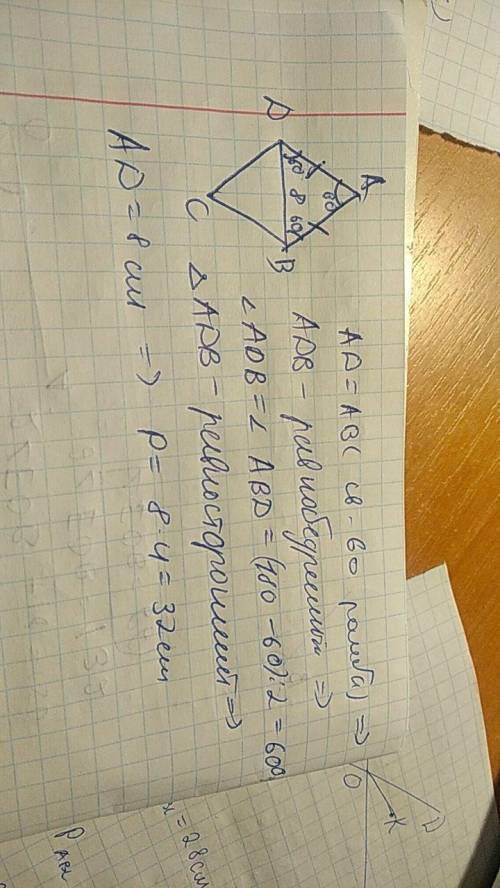 A
60
D
60
8
60
B
C
AD = AB (св-во ромба) =>
ADB - равнобедренный =>
∠ADB = ∠ABD = (180 - 60) : 2 = 60°
△ADB - равносторонний =>
AD = 8 см => P = 8 · 4 = 32 см
D
K
O
x = 28 см